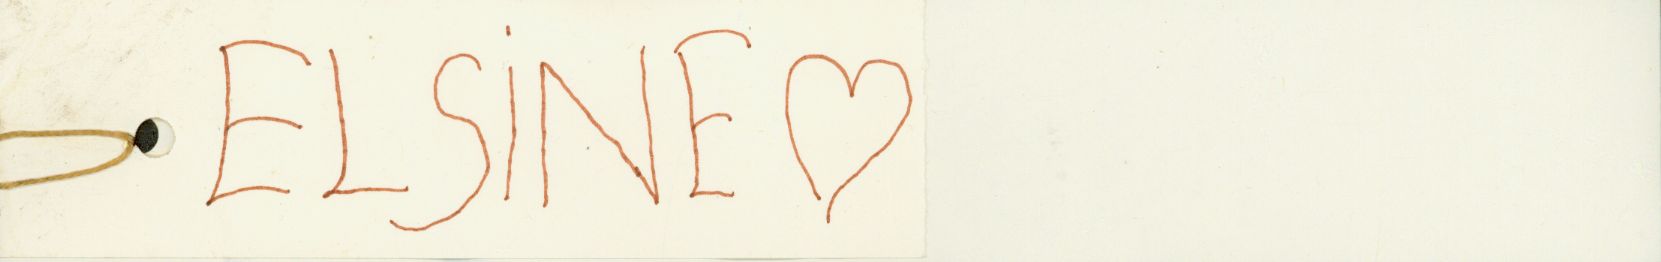 ELSiNE ♡